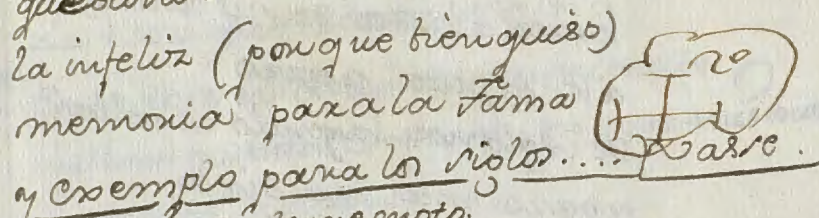 la infeliz (porque bien quiso)
memoria para la Fama no
y exemplo para los siglos.... Vasse.